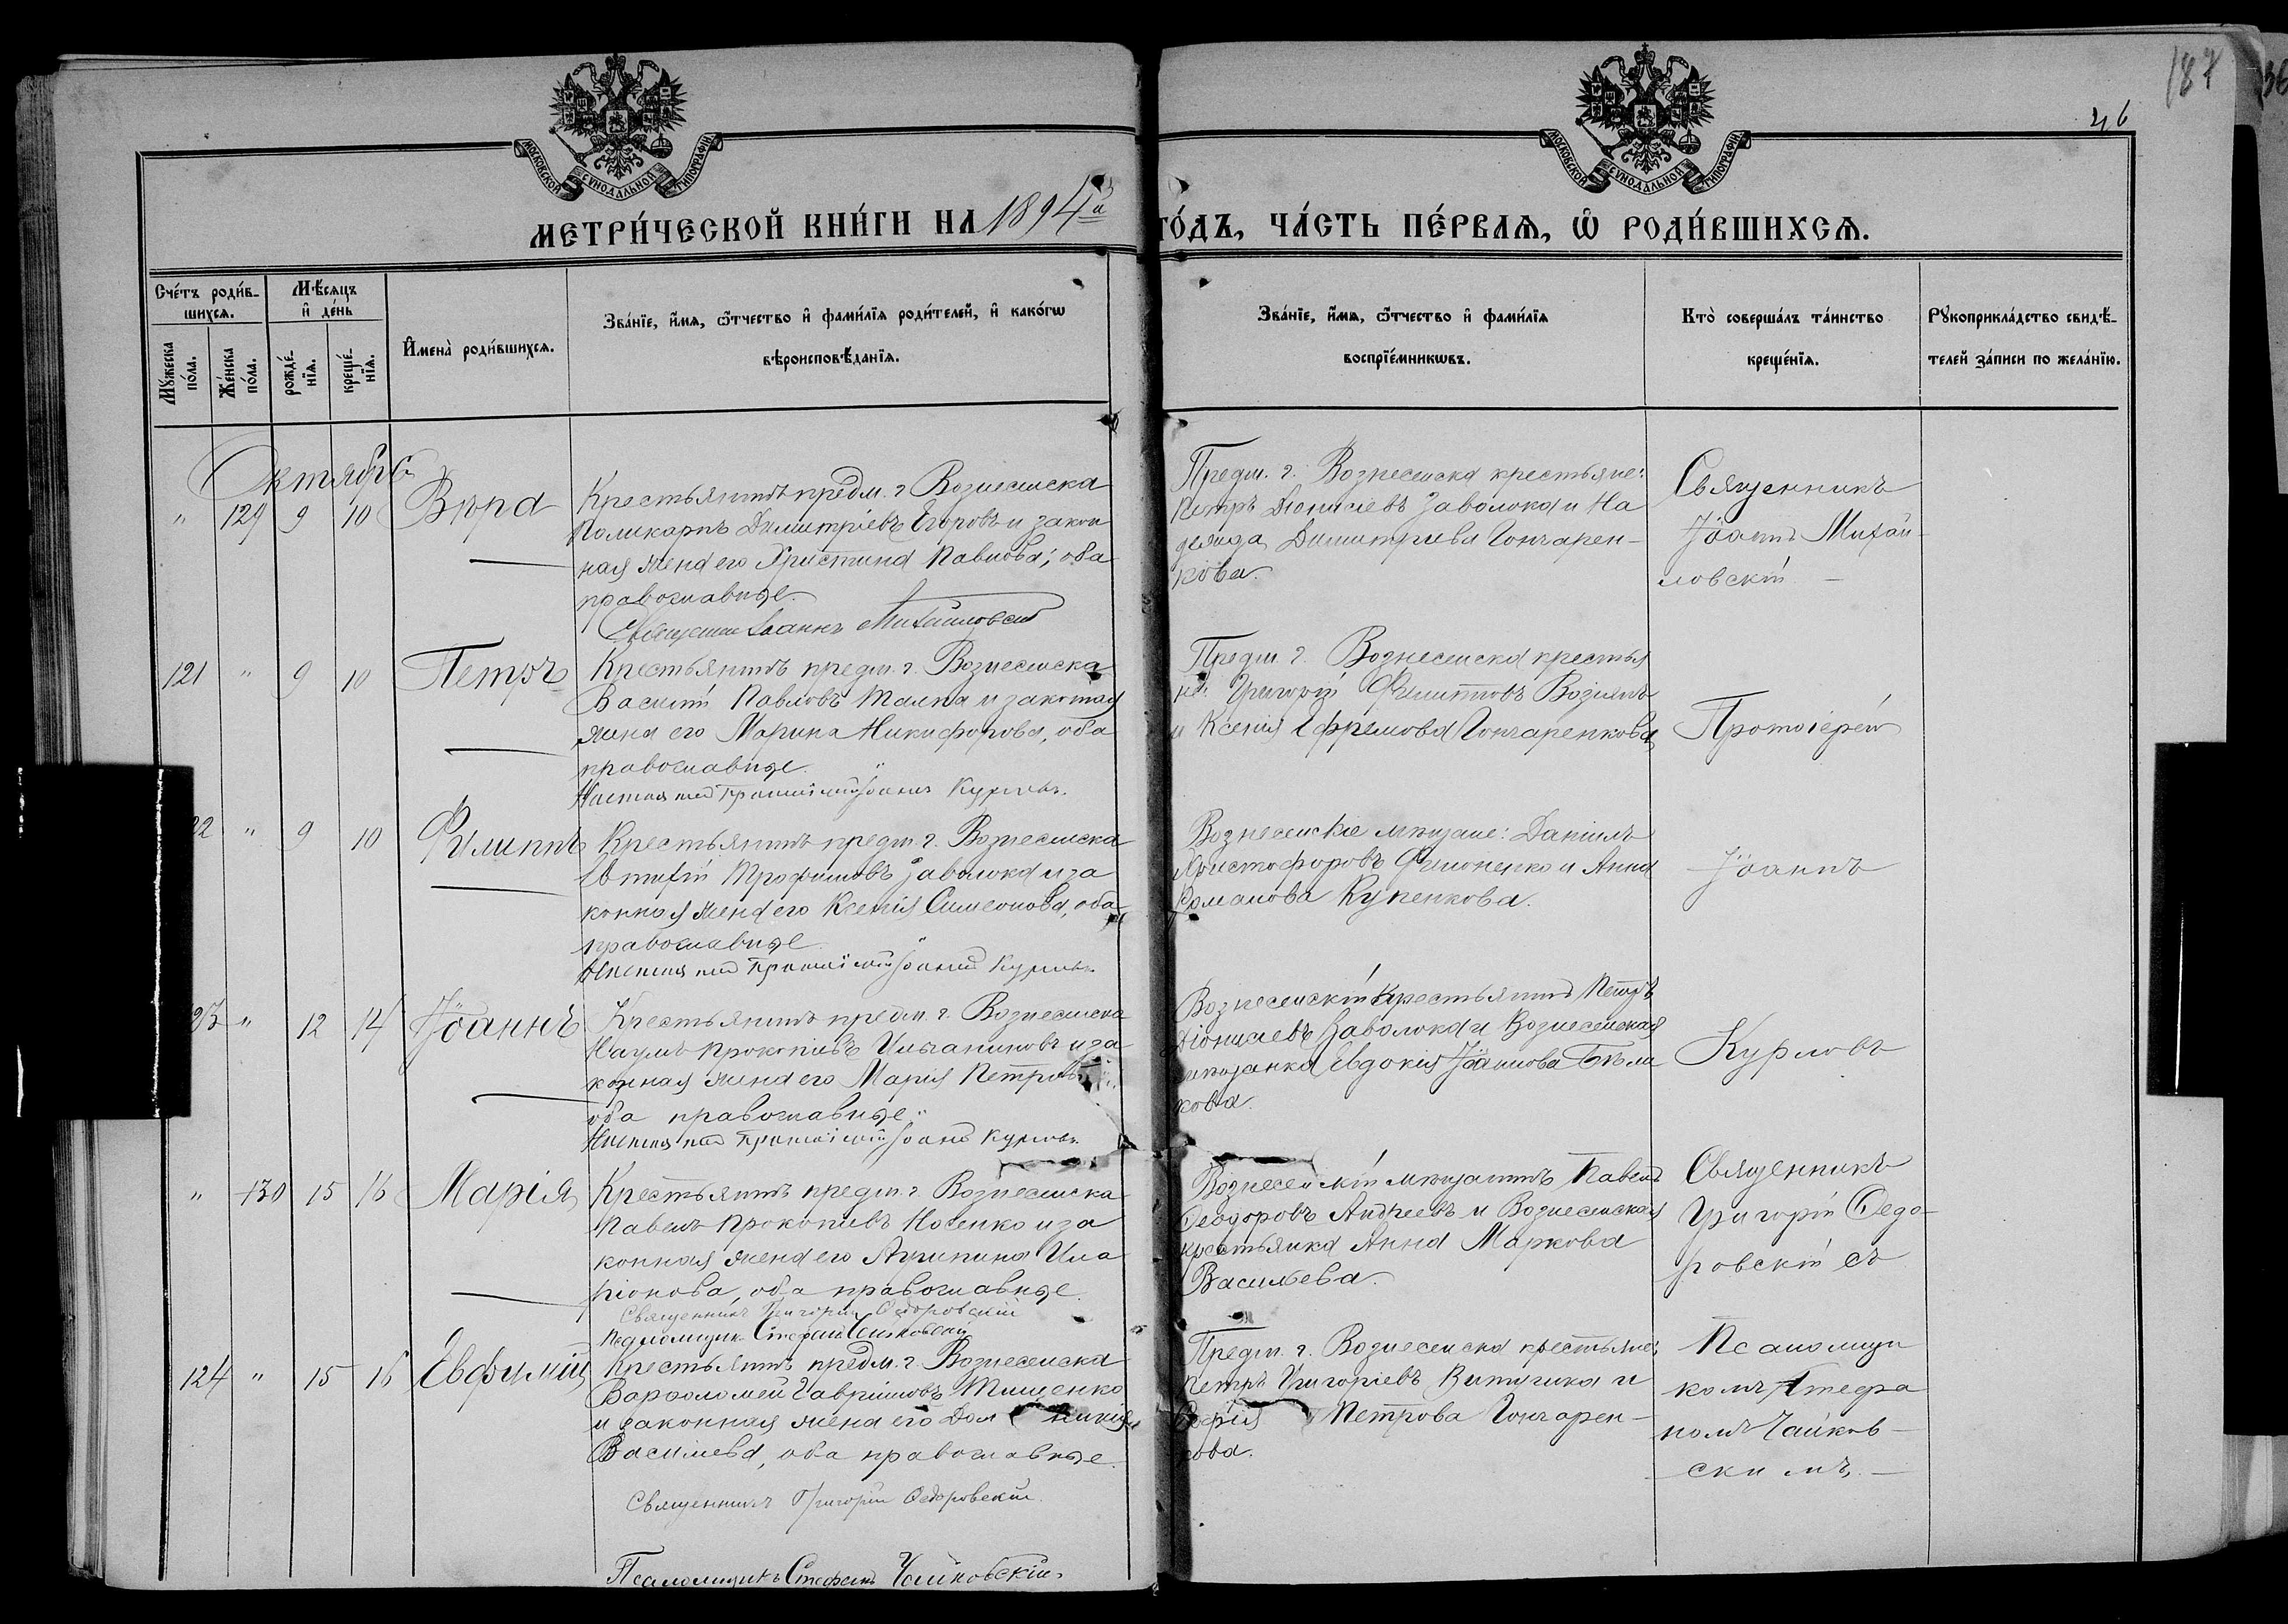 187
46
МОСКОВСКОЙ СѴНОДАЛЬНОЙ ТИПОГРАФІИ
МОСКОВСКОЙ СѴНОДАЛЬНОЙ ТИПОГРАФІИ
МЕТРИ́ЧЕСКОЙ КНИ́ГИ НА 1894й ГО́ДЪ, ЧА́СТЬ ПЕ́РВАѦ, Ѡ҆ РОДИ́ВШИХСѦ.
Счéтъ роди́в-
шихсѧ.
Мꙋ́жеска пóла.
Жéнска пóла.
Мѣ́сѧцъ
и҆ дéнь
рождé-
нїѧ.
крещé-
нїѧ.
И҆менà роди́вшихсѧ.
Звáнїе, и҆́мѧ, ѻ҆́тчество и҆ фами́лїѧ роди́телей, и҆ какóгѡ
вѣроисповѣ́данїѧ.
Звáнїе, и҆́мѧ, ѻ҆́тчество и҆ фами́лїѧ
воспрїéмникѡвъ.
Ктò совершáлъ тáинство
крещéнїѧ.
Рꙋкоприклáдство свидѣ́-
телей зáписи по желáнїю.
Октябрь
" 129 9 10 Вѣра
Крестьянинъ предм. г. Вознесенска
Поликарпъ Димитріевъ Егоровъ и закон
ная жена его Христина Павлова; оба
православные.
Священникъ Іоаннъ Михайловскій
Предм. г. Вознесенска крестьяне:
Петръ Діонисіевъ Заволока и На
дежда Димитріева Гончарен-
кова.
Священникъ
Іоаннъ Михай
ловскій. —
121 " 9 10 Петръ
Крестьянинъ предм. г. Вознесенска
Василій Павловъ Талпа и законная
жена его Марина Никифорова, оба
православные.
Настоятель Протоіерей Іоаннъ Курловъ.
Предм. г. Вознесенска крестья
не: Григорій Филипповъ Возіянъ
и Ксенія Ефремова Гончаренкова
Протоіерей
22 " 9 10 Филиппъ
Крестьянинъ предм. г. Вознесенска
Евтихій Трофимовъ Заволока и за
конная жена его Ксенія Симеонова, оба
православные.
Настоятель Протоіерей Іоаннъ Курловъ.
Вознесенскіе мѣщане: Даніилъ
Христофоровъ Филоненко и Анна
Романова Купенкова.
Іоаннъ
23 " 12 14 Іоаннъ
Крестьянинъ предм. г. Вознесенска
Наумъ Прокопіевъ и за
конная жена его Марія Петрова
оба православные.
Настоятель Протоіерей Іоаннъ Курловъ.
Вознесенскій крестьянинъ Петръ
Діонисіевъ Заволока и Вознесенская
мѣщанка Евдокія Іоаннова Бѣли
кова.
Курловъ
" 130 15 16 Марія
Крестьянинъ предм. г. Вознесенска
Павелъ Прокопіевъ Носенко и за
конная жена его Агрипина Ила
ріонова, оба православные.
Священникъ Григорій Ѳедоровскій
Псаломщикъ Стефанъ Чайковскій
Вознесенскій мѣщанинъ Павелъ
Ѳеодоровъ Андреевъ и Вознесенская
крестьянка Анна Маркова
Васильева.
Священникъ
Григорій Ѳедо-
ровскій съ
124 " 15 16 Евфимій
Крестьянинъ предм. г. Вознесенска
Варѳоломей Гавріиловъ Тищенко
и законная жена его Дом никія
Васильева, оба православные.
Священникъ Григорій Ѳедоровскій.
Псаломщикъ Стефанъ Чайковскій.
Предм. г. Вознесенска крестьяне:
Петръ Григоріевъ и
Софія Петрова Гончарен-
кова.
Псаломщи
комъ Стефа
номъ Чайков-
скимъ. —